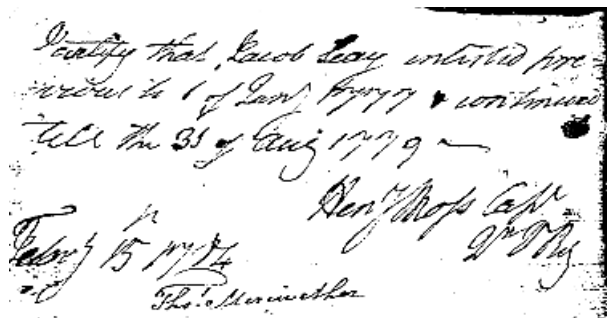 I certify that Jacob Seay inlisted pre-
vious to 1 of Jany 1777 & continued
till the 31 of Aug 1779
Heny Moss Capt
Feby 15 1784
Thos. Meriwether